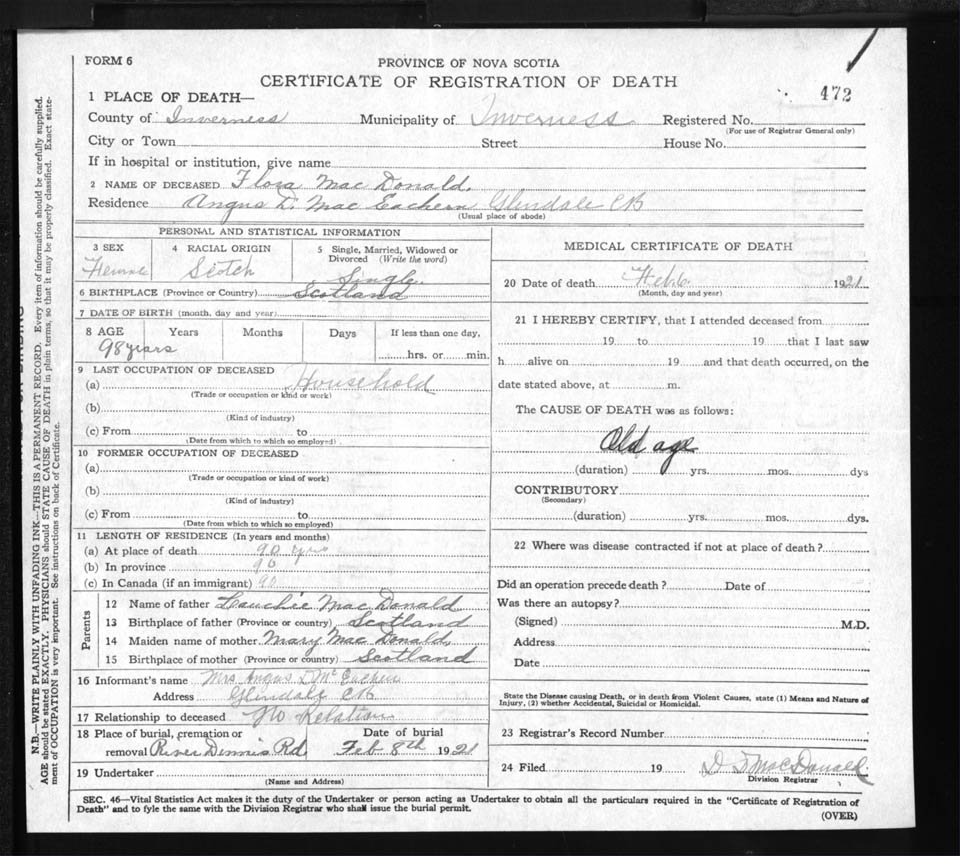 FORM 6
PROVINCE OF NOVA SCOTIA
CERTIFICATE OF REGISTRATION OF DEATH
472
1 PLACE OF DEATH—
County of Inverness Municipality of Inverness Registered No.
(For use of Registrar General only)
City or Town Street House No.
If in hospital or institution, give name
2 NAME OF DECEASED Flora Mac Donald.
Residence Angus D. Mac Eachern Glendale CB
(Usual place of abode)
PERSONAL AND STATISTICAL INFORMATION
3 SEX 4 RACIAL ORIGIN 5 Single, Married, Widowed or Divorced (Write the word)
Scotch Single
6 BIRTHPLACE (Province or Country) Scotland
7 DATE OF BIRTH (month, day and year)
8 AGE Years Months Days If less than one day,
98 years hrs. or min.
9 LAST OCCUPATION OF DECEASED
(a) Household
(Trade or occupation or kind or work)
(b)
(Kind of industry)
(c) From to
(Date from which to which so employed)
10 FORMER OCCUPATION OF DECEASED
(a)
(Trade or occupation or kind of work)
(b)
(Kind of industry)
(c) From to
(Date from which to which so employed)
11 LENGTH OF RESIDENCE (In years and months)
(a) At place of death 90 yrs
(b) In province 90
(c) In Canada (if an immigrant) 90
Parents
12 Name of father Lauchie Mac Donald
13 Birthplace of father (Province or country) Scotland
14 Maiden name of mother Mary Mac Donald,
15 Birthplace of mother (Province or country) Scotland
16 Informant's name Mrs Angus D Mc Eachern
Address Glendale CB
17 Relationship to deceased No Relation
18 Place of burial, cremation or Date of burial
removal River Dennis Rd Feb 8th 1921
19 Undertaker
(Name and Address)
MEDICAL CERTIFICATE OF DEATH
20 Date of death Feb. 6 1921
(Month, day and year)
21 I HEREBY CERTIFY, that I attended deceased from
19 to 19 that I last saw
h alive on 19 and that death occurred, on the
date stated above, at m.
The CAUSE OF DEATH was as follows:
Old age
(duration) yrs. mos. dys
CONTRIBUTORY
(Secondary)
(duration) yrs. mos. dys.
22 Where was disease contracted if not at place of death?
Did an operation precede death? Date of
Was there an autopsy?
(Signed) M.D.
Address
Date
State the Disease causing Death, or in death from Violent Causes, state (1) Means and Nature of
Injury, (2) whether Accidental, Suicidal or Homicidal.
23 Registrar's Record Number
24 Filed 19 D MacDonald
Division Registrar
SEC. 46—Vital Statistics Act makes it the duty of the Undertaker or person acting as Undertaker to obtain all the particulars required in the "Certificate of Registration of
Death" and to fyle the same with the Division Registrar who shall issue the burial permit.
(OVER)
N.B.—WRITE PLAINLY WITH UNFADING INK—THIS IS A PERMANENT RECORD. Every item of information should be carefully supplied.
AGE should be stated EXACTLY. PHYSICIANS should STATE CAUSE OF DEATH in plain terms, so that it may be properly classified. Exact state-
ment of OCCUPATION is very important. See instructions on back of Certificate.